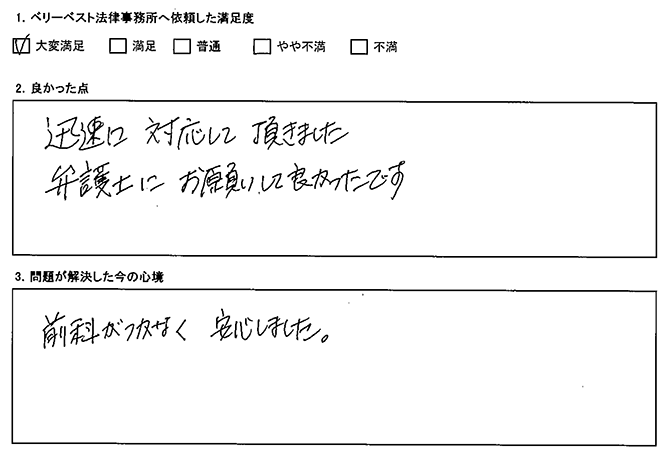 1. ベリーベスト法律事務所へ依頼した満足度
☑ 大変満足 □ 満足 □ 普通 □ やや不満 □ 不満
2. 良かった点
迅速に 対応して 頂きました
弁護士に お願いして良かったです
3. 問題が解決した今の心境
前科がつかなく 安心しました。